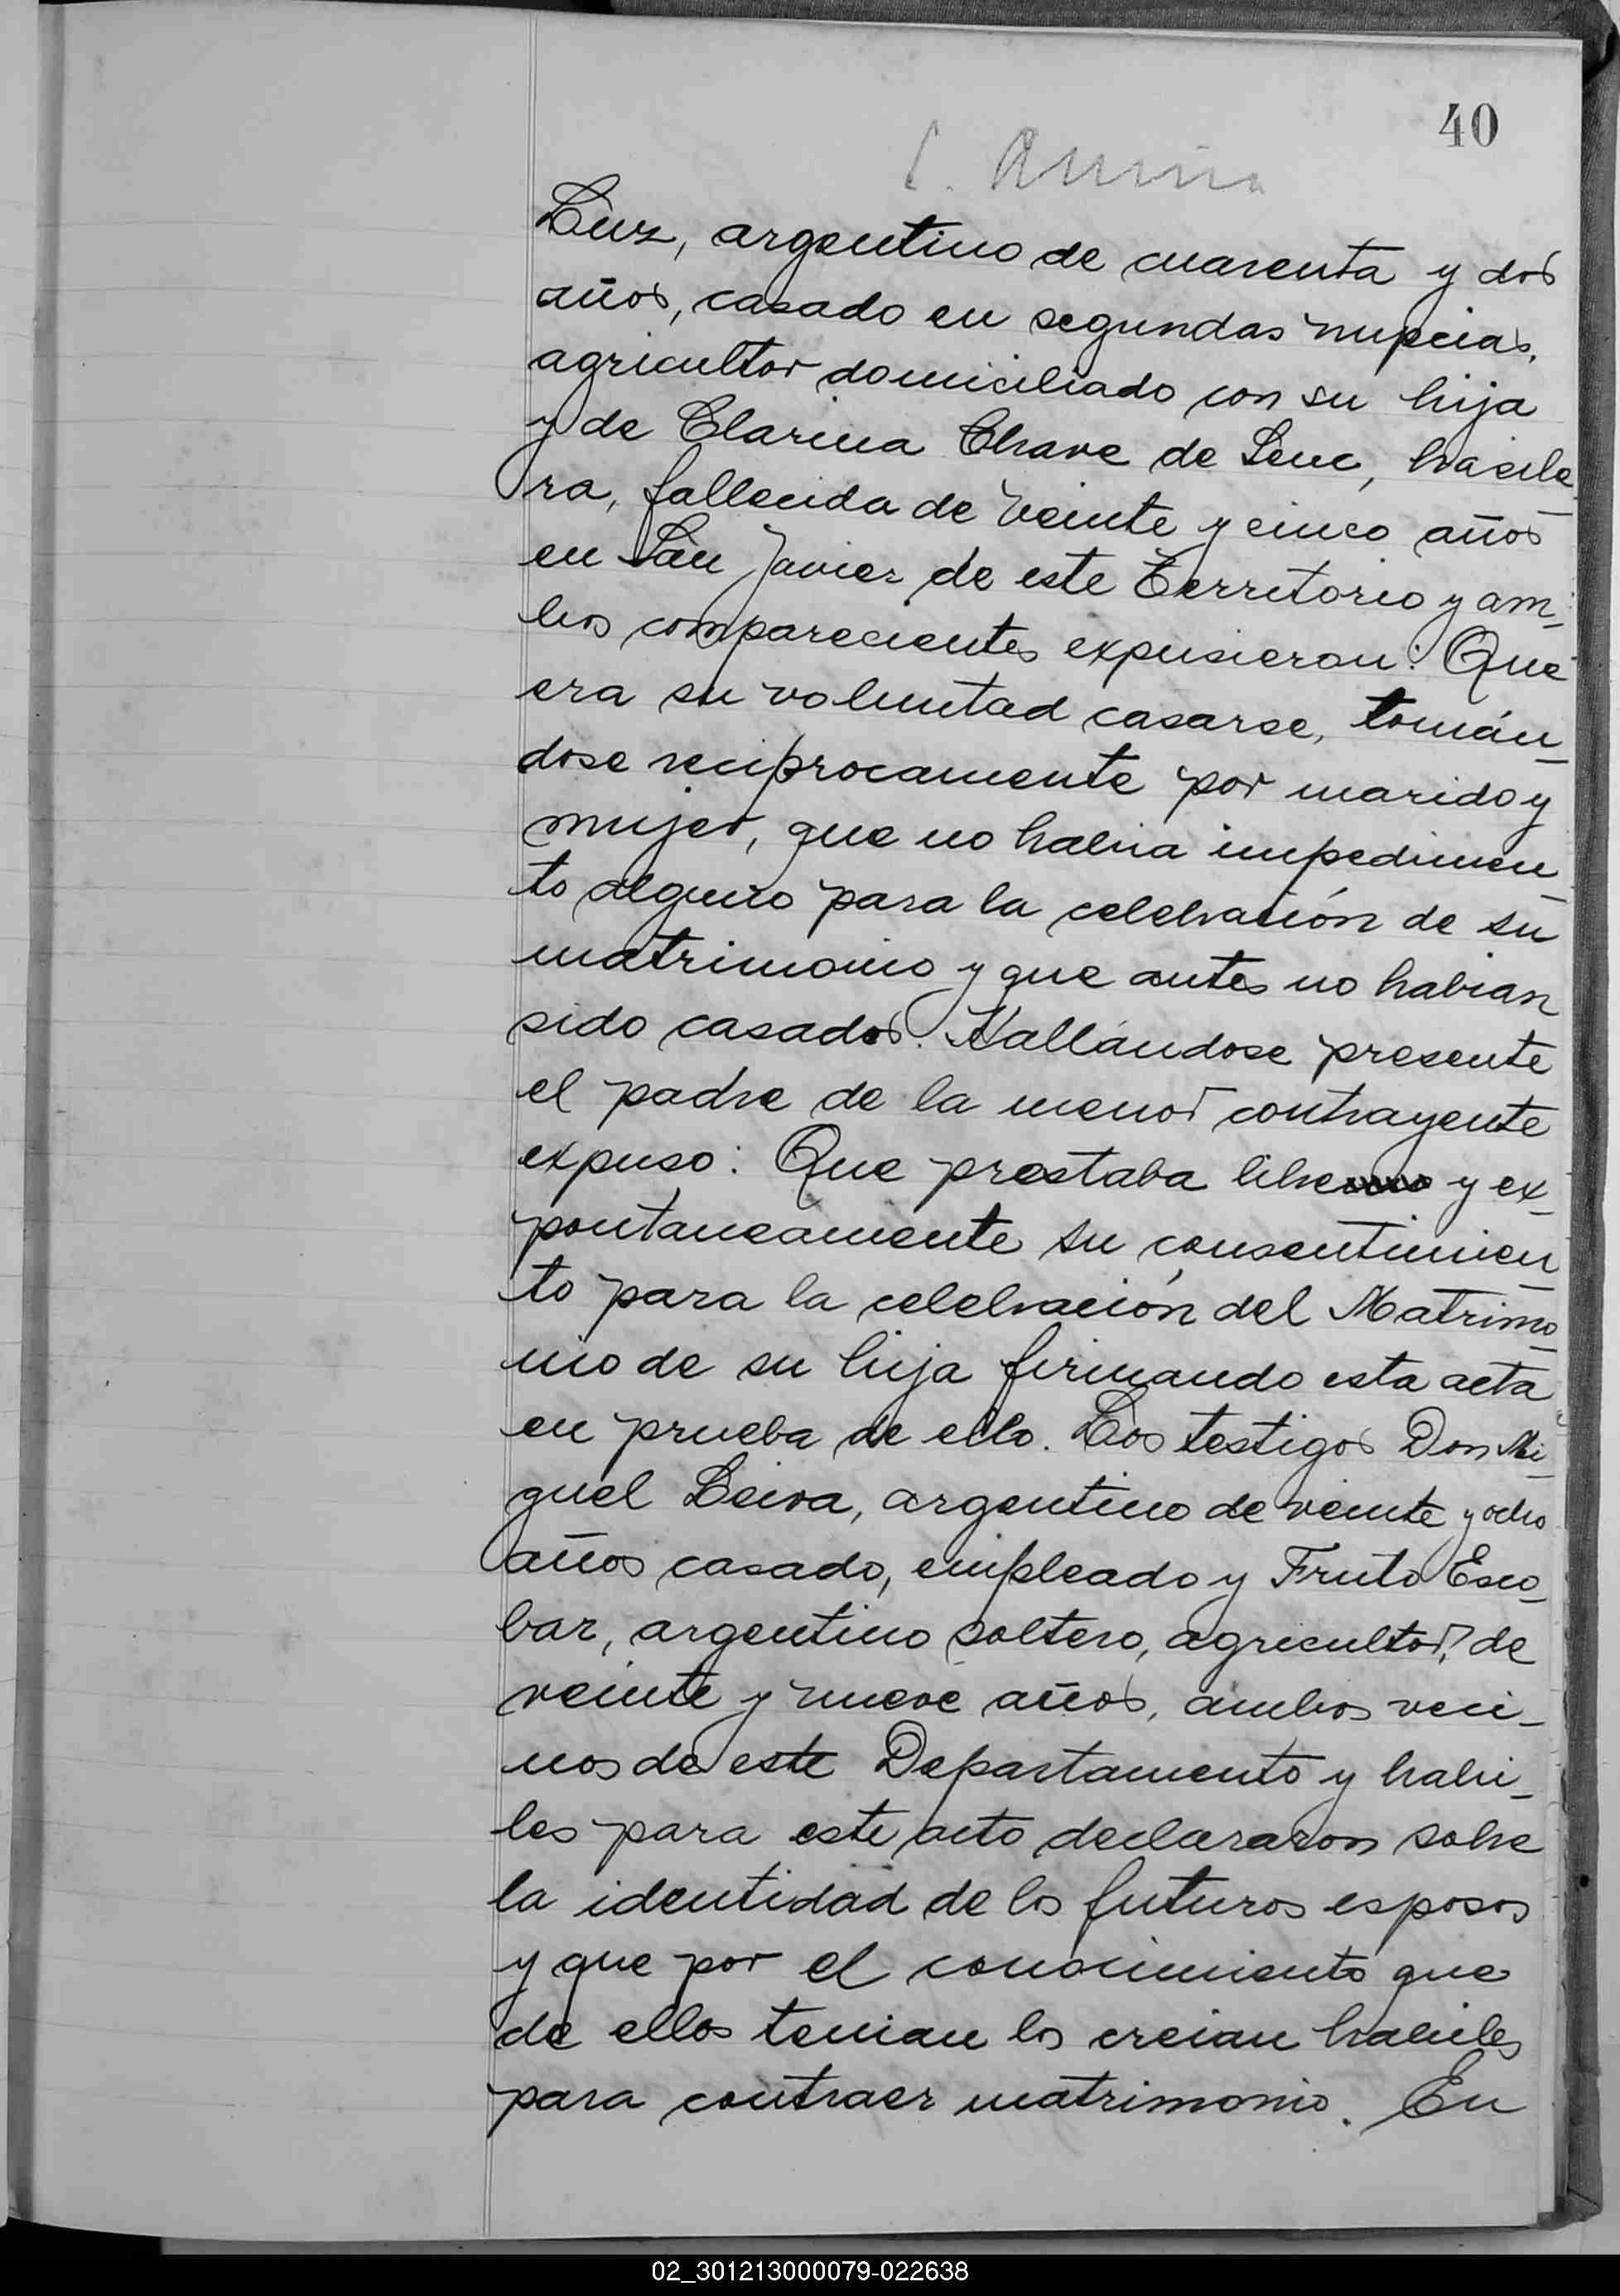 40
Luz, argentino de cuarenta y dos
años, casado en segundas nupcias,
agricultor domiciliado con su hija
y de Clarina Chave de Luc, brasile
ra, fallecida de veinte y cinco años
en San Javier de este Territorio y am_
bos comparecientes expusieron: Que
era su voluntad casarse, tomán_
dose reciprocamente por marido y
mujer, que no habia impedimen_
to alguno para la celebración de su
matrimonio y que antes no habian
sido casados. Hallándose presente
el padre de la menor contrayente
expuso: Que prestaba libre y ex_
pontaneamente su consentimien_
to para la celebración del Matrimo_
nio de su hija firmando esta acta
en prueba de ello. Los testigos Don Mi_
guel Leiva, argentino de veinte y ocho
años casado, empleado y Fruto Esco_
bar, argentino soltero, agricultor, de
veinte y nueve años, ambos veci_
nos de este Departamento y habi_
les para este acto declararon sobre
la identidad de los futuros esposos
y que por el conocimiento que
de ellos tenian los creian habiles
para contraer matrimonio. En
02_301213000079-022638